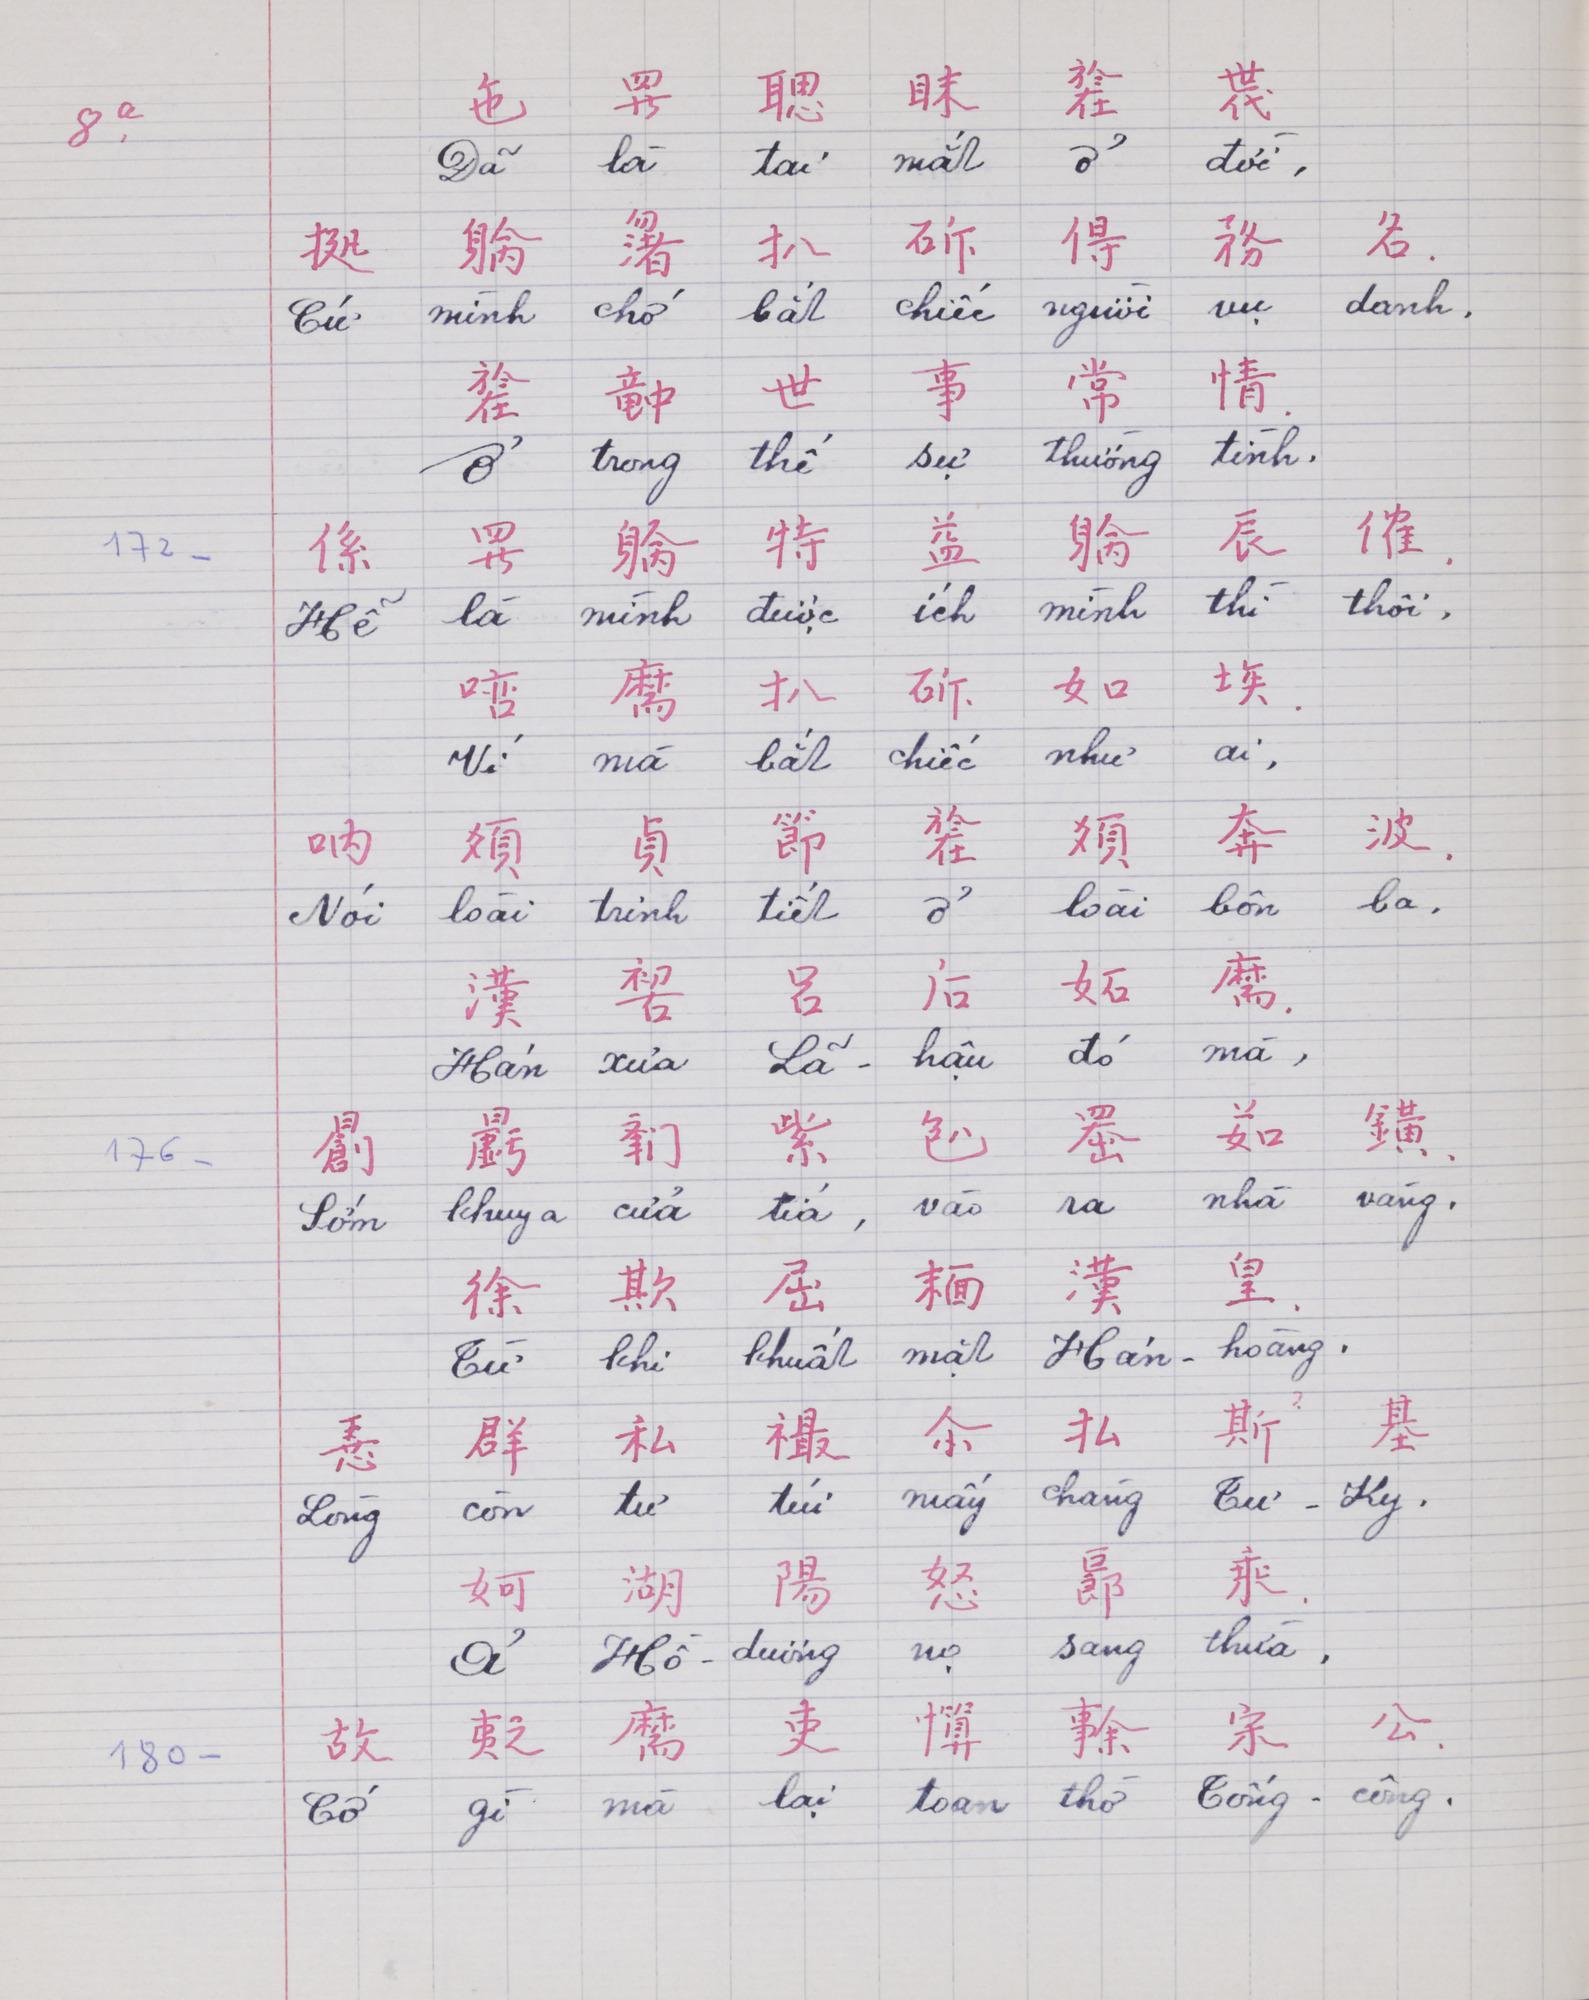 8a.
㐌 𱺵 聰 眜 𣄒 𠁀
Đã là tai mắt ở đời,
拠 躺 渚 扒 斫 得 務 名.
Cứ mình chớ bắt chiếc người vụ danh.
𣄒 𥪝 世 事 常 情.
Ở trong thế sự thường tình.
172_ 係 𱺵 躺 特 益 躺 辰 催.
Hễ là mình được ích mình thì thôi,
𠸠 麼 扒 斫 如 埃.
Ví mà bắt chiếc như ai,
吶 𩔗 貞 節 𣄒 𩔗 奔 波.
Nói loài trinh tiết ở loài bôn ba.
漢 𠸗 呂 后 妬 麼.
Hán xưa Lã-hậu đó mà,
176_ 𣋽 𣌉 𨷯 紫 𠓨 𦋦 茹 鐄.
Sớm khuya cửa tía, vào ra nhà vàng.
徐 欺 屈 𩈘 漢 皇.
Từ khi khuất mặt Hán-hoàng.
𢚸 群 私 襊 尒 払 斯 ? 基
Lòng còn tư túi mấy chàng Tư-Ky.
妸 湖 陽 怒 𨖅 乘.
Ả Hồ-dương nọ sang thừa,
180- 故 之 麼 吏 𢥇 蜍 宋 公.
Cớ gì mà lại toan thờ Tống-công.